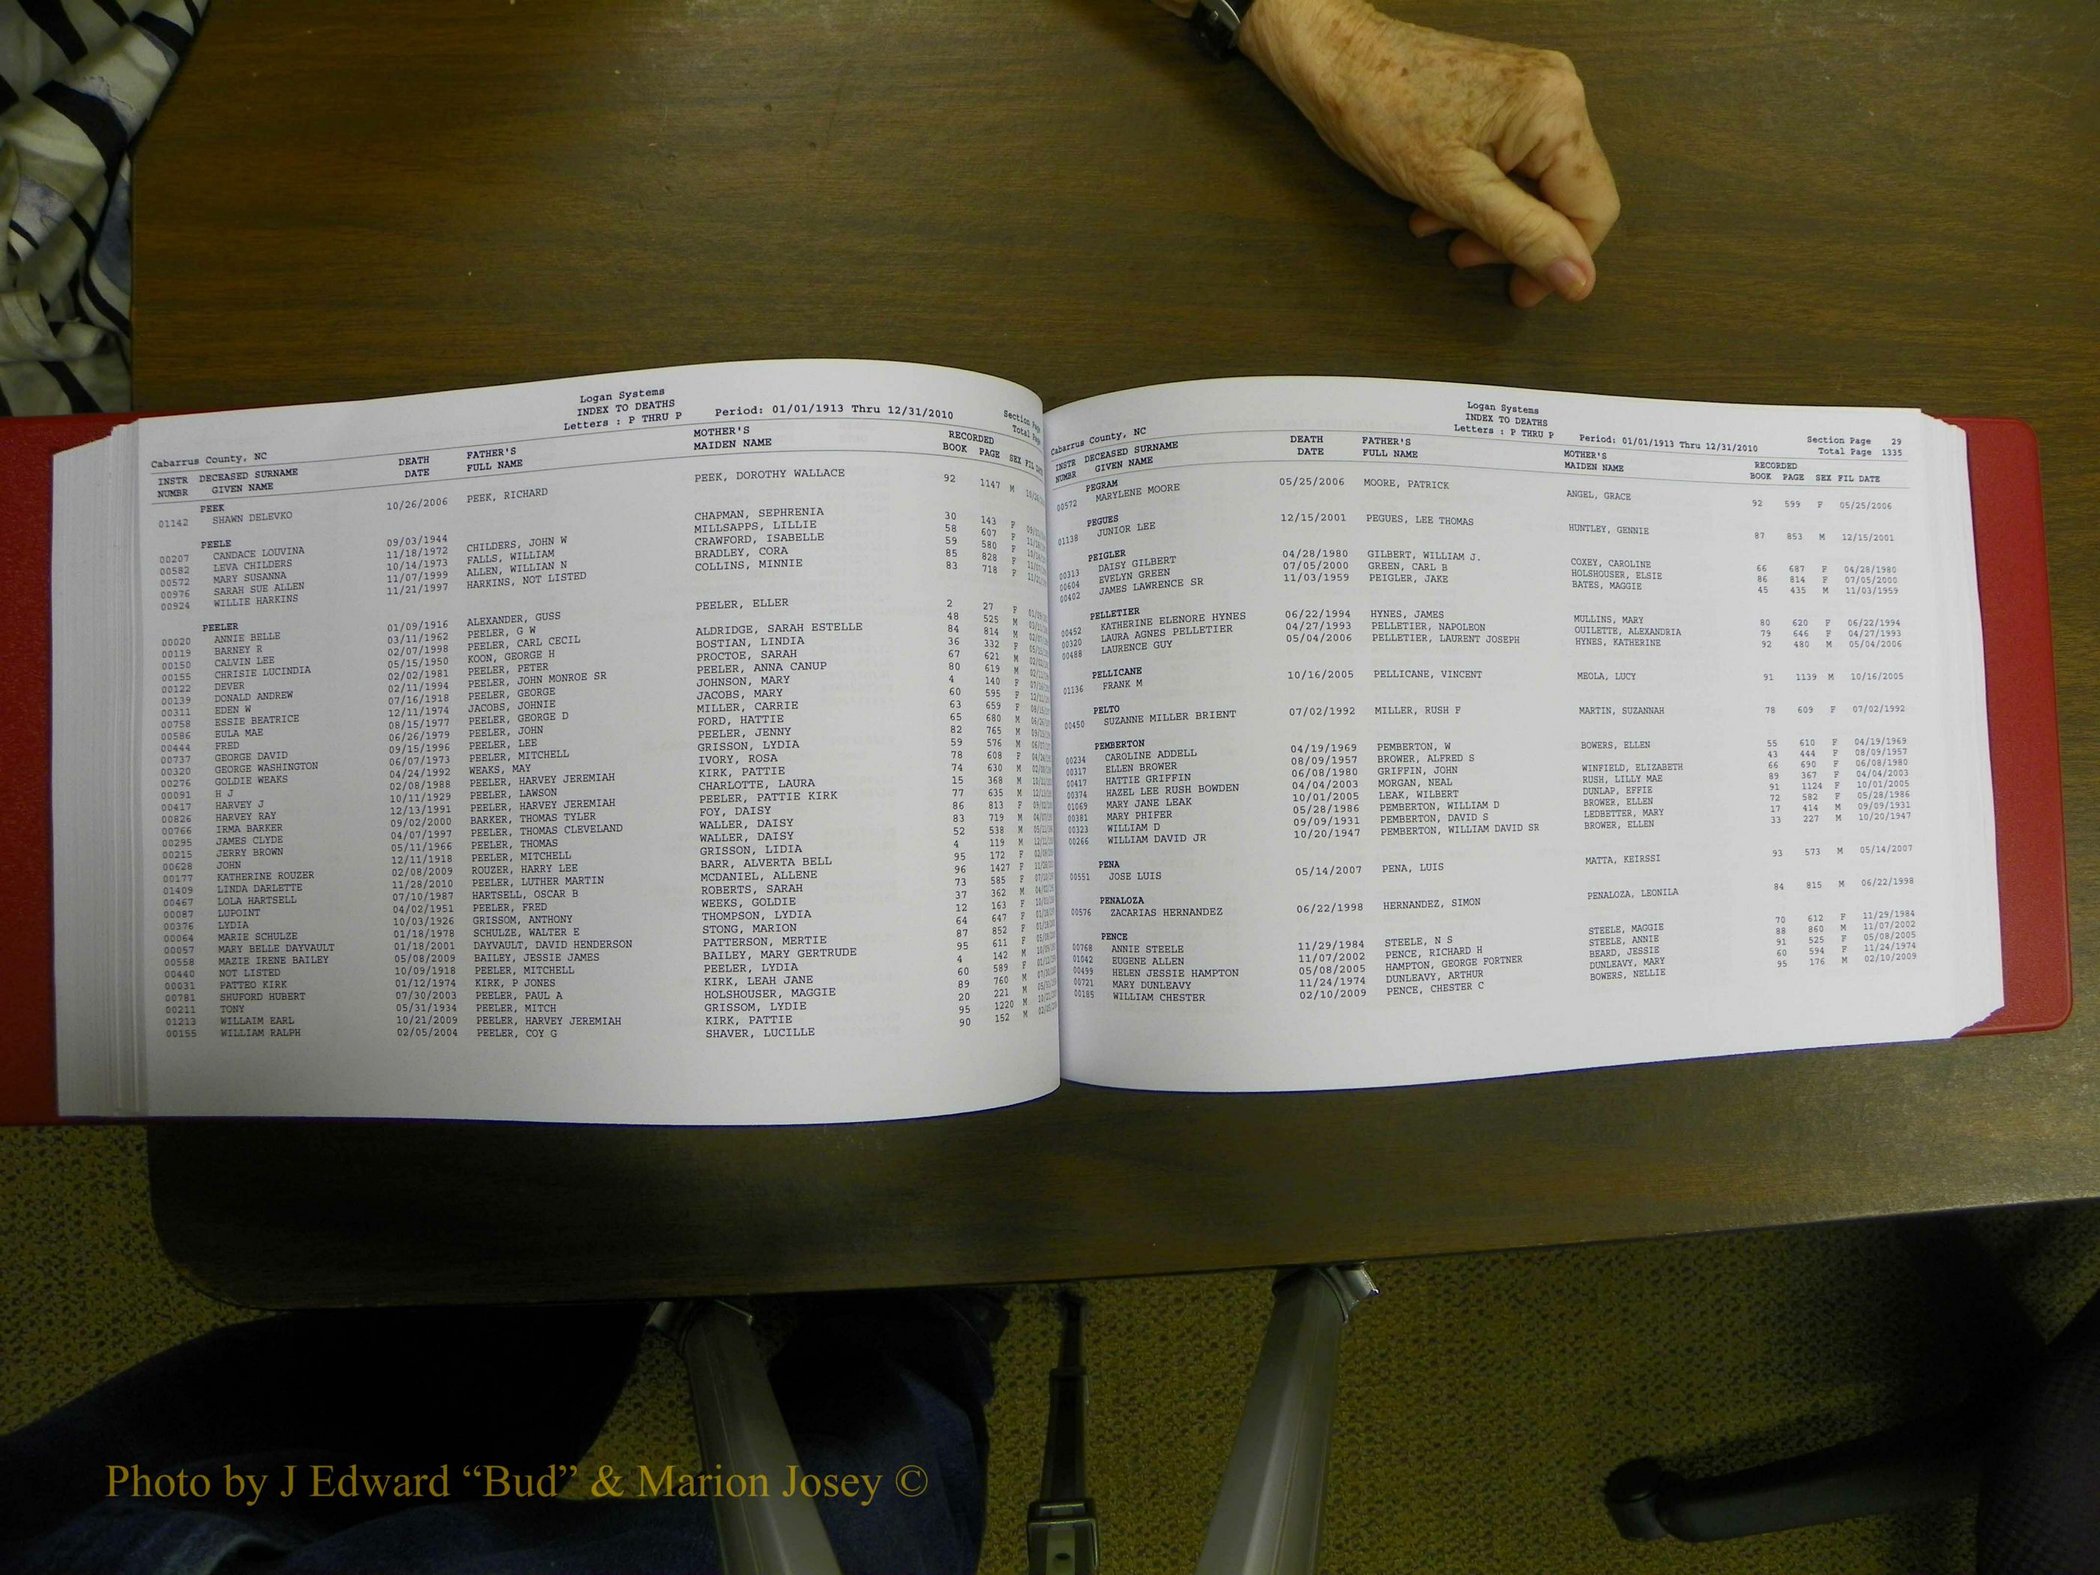 Logan Systems
INDEX TO DEATHS
Letters : P THRU P Period: 01/01/1913 Thru 12/31/2010
Cabarrus County, NC
INSTR DECEASED SURNAME DEATH FATHER'S MOTHER'S RECORDED
NUMBR GIVEN NAME DATE FULL NAME MAIDEN NAME BOOK PAGE SEX FIL DATE
PEEK
01142 SHAWN DELEVKO 10/26/2006 PEEK, RICHARD PEEK, DOROTHY WALLACE 92 1147 M
PEELE
00207 CANDACE LOUVINA 09/03/1944 CHAPMAN, SEPHRENIA 30 143 F
00582 LEVA CHILDERS 11/18/1972 CHILDERS, JOHN W MILLSAPPS, LILLIE 58 607 F
00572 MARY SUSANNA 10/14/1973 FALLS, WILLIAM CRAWFORD, ISABELLE 59 580 F
00976 SARAH SUE ALLEN 11/07/1999 ALLEN, WILLIAN N BRADLEY, CORA 85 828 F
00924 WILLIE HARKINS 11/21/1997 HARKINS, NOT LISTED COLLINS, MINNIE 83 718 F
PEELER
00020 ANNIE BELLE 01/09/1916 ALEXANDER, GUSS PEELER, ELLER 2 27 F
00119 BARNEY R 03/11/1962 PEELER, G W 48 525 M
00150 CALVIN LEE 02/07/1998 PEELER, CARL CECIL ALDRIDGE, SARAH ESTELLE 84 814 M
00155 CHRISIE LUCINDIA 05/15/1950 KOON, GEORGE H BOSTIAN, LINDIA 36 332 F
00122 DEVER 02/02/1981 PEELER, PETER PROCTOE, SARAH 67 621 M
00139 DONALD ANDREW 02/11/1994 PEELER, JOHN MONROE SR PEELER, ANNA CANUP 80 619 M
00311 EDEN W 07/16/1918 PEELER, GEORGE JOHNSON, MARY 4 140 F
00758 ESSIE BEATRICE 12/11/1974 JACOBS, JOHNIE JACOBS, MARY 60 595 F
00586 EULA MAE 08/15/1977 PEELER, GEORGE D MILLER, CARRIE 63 659 F
00444 FRED 06/26/1979 PEELER, JOHN FORD, HATTIE 65 680 M
00737 GEORGE DAVID 09/15/1996 PEELER, LEE PEELER, JENNY 82 765 M
00320 GEORGE WASHINGTON 06/07/1973 PEELER, MITCHELL GRISSON, LYDIA 59 576 M
00276 GOLDIE WEAKS 04/24/1992 WEAKS, MAY IVORY, ROSA 78 608 F
00091 H J 02/08/1988 PEELER, HARVEY JEREMIAH KIRK, PATTIE 74 630 M
00417 HARVEY J 10/11/1929 PEELER, LAWSON CHARLOTTE, LAURA 15 368 M
00826 HARVEY RAY 12/13/1991 PEELER, HARVEY JEREMIAH PEELER, PATTIE KIRK 77 635 M
00766 IRMA BARKER 09/02/2000 BARKER, THOMAS TYLER FOY, DAISY 86 813 F
00295 JAMES CLYDE 04/07/1997 PEELER, THOMAS CLEVELAND WALLER, DAISY 83 719 M
00215 JERRY BROWN 05/11/1966 PEELER, THOMAS WALLER, DAISY 52 538 M
00628 JOHN 12/11/1918 PEELER, MITCHELL GRISSON, LIDIA 4 119 M
00177 KATHERINE ROUZER 02/08/2009 ROUZER, HARRY LEE BARR, ALVERTA BELL 95 172 F
01409 LINDA DARLETTE 11/28/2010 PEELER, LUTHER MARTIN MCDANIEL, ALLENE 96 1427 F
00467 LOLA HARTSELL 07/10/1987 HARTSELL, OSCAR B ROBERTS, SARAH 73 585 F
00087 LUPOINT 04/02/1951 PEELER, FRED WEEKS, GOLDIE 37 362 M
00376 LYDIA 10/03/1926 GRISSOM, ANTHONY THOMPSON, LYDIA 12 163 F
00064 MARIE SCHULZE 01/18/1978 SCHULZE, WALTER E STONG, MARION 64 647 F
00057 MARY BELLE DAYVAULT 01/18/2001 DAYVAULT, DAVID HENDERSON PATTERSON, MERTIE 87 852 F
00558 MAZIE IRENE BAILEY 05/08/2009 BAILEY, JESSIE JAMES BAILEY, MARY GERTRUDE 95 611 F
00440 NOT LISTED 10/09/1918 PEELER, MITCHELL PEELER, LYDIA 4 142 M
00031 PATTEO KIRK 01/12/1974 KIRK, P JONES KIRK, LEAH JANE 60 589 F
00781 SHUFORD HUBERT 07/30/2003 PEELER, PAUL A HOLSHOUSER, MAGGIE 89 760 M
00211 TONY 05/31/1934 PEELER, MITCH GRISSOM, LYDIE 20 221 M
01213 WILLAIM EARL 10/21/2009 PEELER, HARVEY JEREMIAH KIRK, PATTIE 95 1220 M
00155 WILLIAM RALPH 02/05/2004 PEELER, COY G SHAVER, LUCILLE 90 152 M
Logan Systems
INDEX TO DEATHS
Letters : P THRU P Period: 01/01/1913 Thru 12/31/2010
Section Page 29
Total Page 1335
Cabarrus County, NC
INSTR DECEASED SURNAME DEATH FATHER'S MOTHER'S RECORDED
NUMBR GIVEN NAME DATE FULL NAME MAIDEN NAME BOOK PAGE SEX FIL DATE
PEGRAM
00572 MARYLENE MOORE 05/25/2006 MOORE, PATRICK ANGEL, GRACE 92 599 F 05/25/2006
PEGUES
01138 JUNIOR LEE 12/15/2001 PEGUES, LEE THOMAS HUNTLEY, GENNIE 87 853 M 12/15/2001
PEIGLER
00313 DAISY GILBERT 04/28/1980 GILBERT, WILLIAM J. COXEY, CAROLINE 66 687 F 04/28/1980
00604 EVELYN GREEN 07/05/2000 GREEN, CARL B HOLSHOUSER, ELSIE 86 814 F 07/05/2000
00402 JAMES LAWRENCE SR 11/03/1959 PEIGLER, JAKE BATES, MAGGIE 45 435 M 11/03/1959
PELLETIER
00452 KATHERINE ELENORE HYNES 06/22/1994 HYNES, JAMES MULLINS, MARY 80 620 F 06/22/1994
00320 LAURA AGNES PELLETIER 04/27/1993 PELLETIER, NAPOLEON OUILETTE, ALEXANDRIA 79 646 F 04/27/1993
00488 LAURENCE GUY 05/04/2006 PELLETIER, LAURENT JOSEPH HYNES, KATHERINE 92 480 M 05/04/2006
PELLICANE
01136 FRANK M 10/16/2005 PELLICANE, VINCENT MEOLA, LUCY 91 1139 M 10/16/2005
PELTO
00450 SUZANNE MILLER BRIENT 07/02/1992 MILLER, RUSH F MARTIN, SUZANNAH 78 609 F 07/02/1992
PEMBERTON
00234 CAROLINE ADDELL 04/19/1969 PEMBERTON, W BOWERS, ELLEN 55 610 F 04/19/1969
00317 ELLEN BROWER 08/09/1957 BROWER, ALFRED S 43 444 F 08/09/1957
00417 HATTIE GRIFFIN 06/08/1980 GRIFFIN, JOHN WINFIELD, ELIZABETH 66 690 F 06/08/1980
00374 HAZEL LEE RUSH BOWDEN 04/04/2003 MORGAN, NEAL RUSH, LILLY MAE 89 367 F 04/04/2003
01069 MARY JANE LEAK 10/01/2005 LEAK, WILBERT DUNLAP, EFFIE 91 1124 F 10/01/2005
00381 MARY PHIFER 05/28/1986 PEMBERTON, WILLIAM D BROWER, ELLEN 72 582 F 05/28/1986
00323 WILLIAM D 09/09/1931 PEMBERTON, DAVID S LEDBETTER, MARY 17 414 M 09/09/1931
00266 WILLIAM DAVID JR 10/20/1947 PEMBERTON, WILLIAM DAVID SR BROWER, ELLEN 33 227 M 10/20/1947
PENA
00551 JOSE LUIS 05/14/2007 PENA, LUIS MATTA, KEIRSSI 93 573 M 05/14/2007
PENALOZA
00576 ZACARIAS HERNANDEZ 06/22/1998 HERNANDEZ, SIMON PENALOZA, LEONILA 84 815 M 06/22/1998
PENCE
00768 ANNIE STEELE 11/29/1984 STEELE, N S STEELE, MAGGIE 70 612 F 11/29/1984
01042 EUGENE ALLEN 11/07/2002 PENCE, RICHARD H STEELE, ANNIE 88 860 M 11/07/2002
00499 HELEN JESSIE HAMPTON 05/08/2005 HAMPTON, GEORGE FORTNER BEARD, JESSIE 91 525 F 05/08/2005
00721 MARY DUNLEAVY 11/24/1974 DUNLEAVY, ARTHUR DUNLEAVY, MARY 60 594 F 11/24/1974
00185 WILLIAM CHESTER 02/10/2009 PENCE, CHESTER C BOWERS, NELLIE 95 176 M 02/10/2009
Photo by J Edward “Bud” & Marion Josey ©